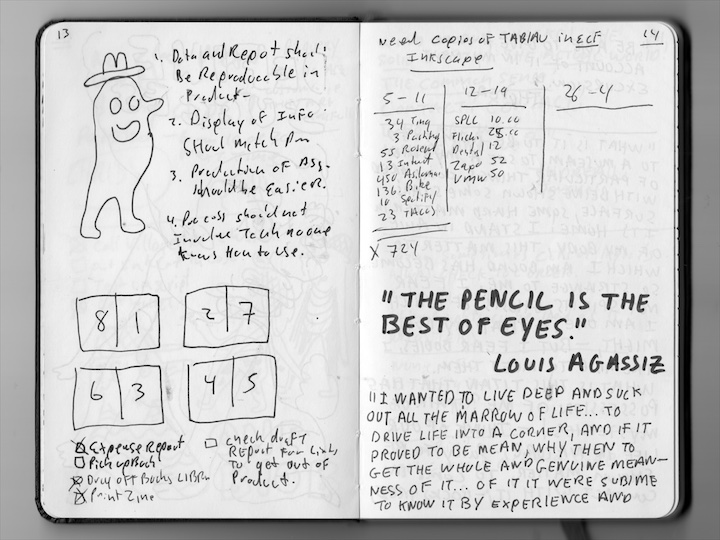 13
1. Data and Repot shoul:
Be Reproducable in
Product-
2. Display of Info
SHoul match
3. Production of
should be Easier.
4. Process should not
Involve Tech no one
knows How to use.
8 1
2 7
6 3
4 5
Expense Report
Pick up Books
Drop off Books LIBRA
Print Zine
check draft
REPORT For Links
To get out of
Product.
14
Need copies of TABLAU in ECF
Inkscape
5-11
34 Ting
3 Parking
55 Rosent
13 Intuit
450
136. Bike
10 Spotify
23 TACOS
X 724
12-19
SPLC 10.00
Flickr 25.00
Dental 12
Zapo 52
50
26-4
"THE PENCIL IS THE
BEST OF EYES."
LOUIS AGASSIZ
"I WANTED TO LIVE DEEP AND SUCK
OUT ALL THE MARROW OF LIFE... TO
DRIVE LIFE INTO A CORNER, AND IF IT
PROVED TO BE MEAN, WHY THEN TO
GET THE WHOLE AND GENUINE MEAN-
NESS OF IT... OF IT IT WERE SUBIME
TO KNOW IT BY EXPERIENCE AND